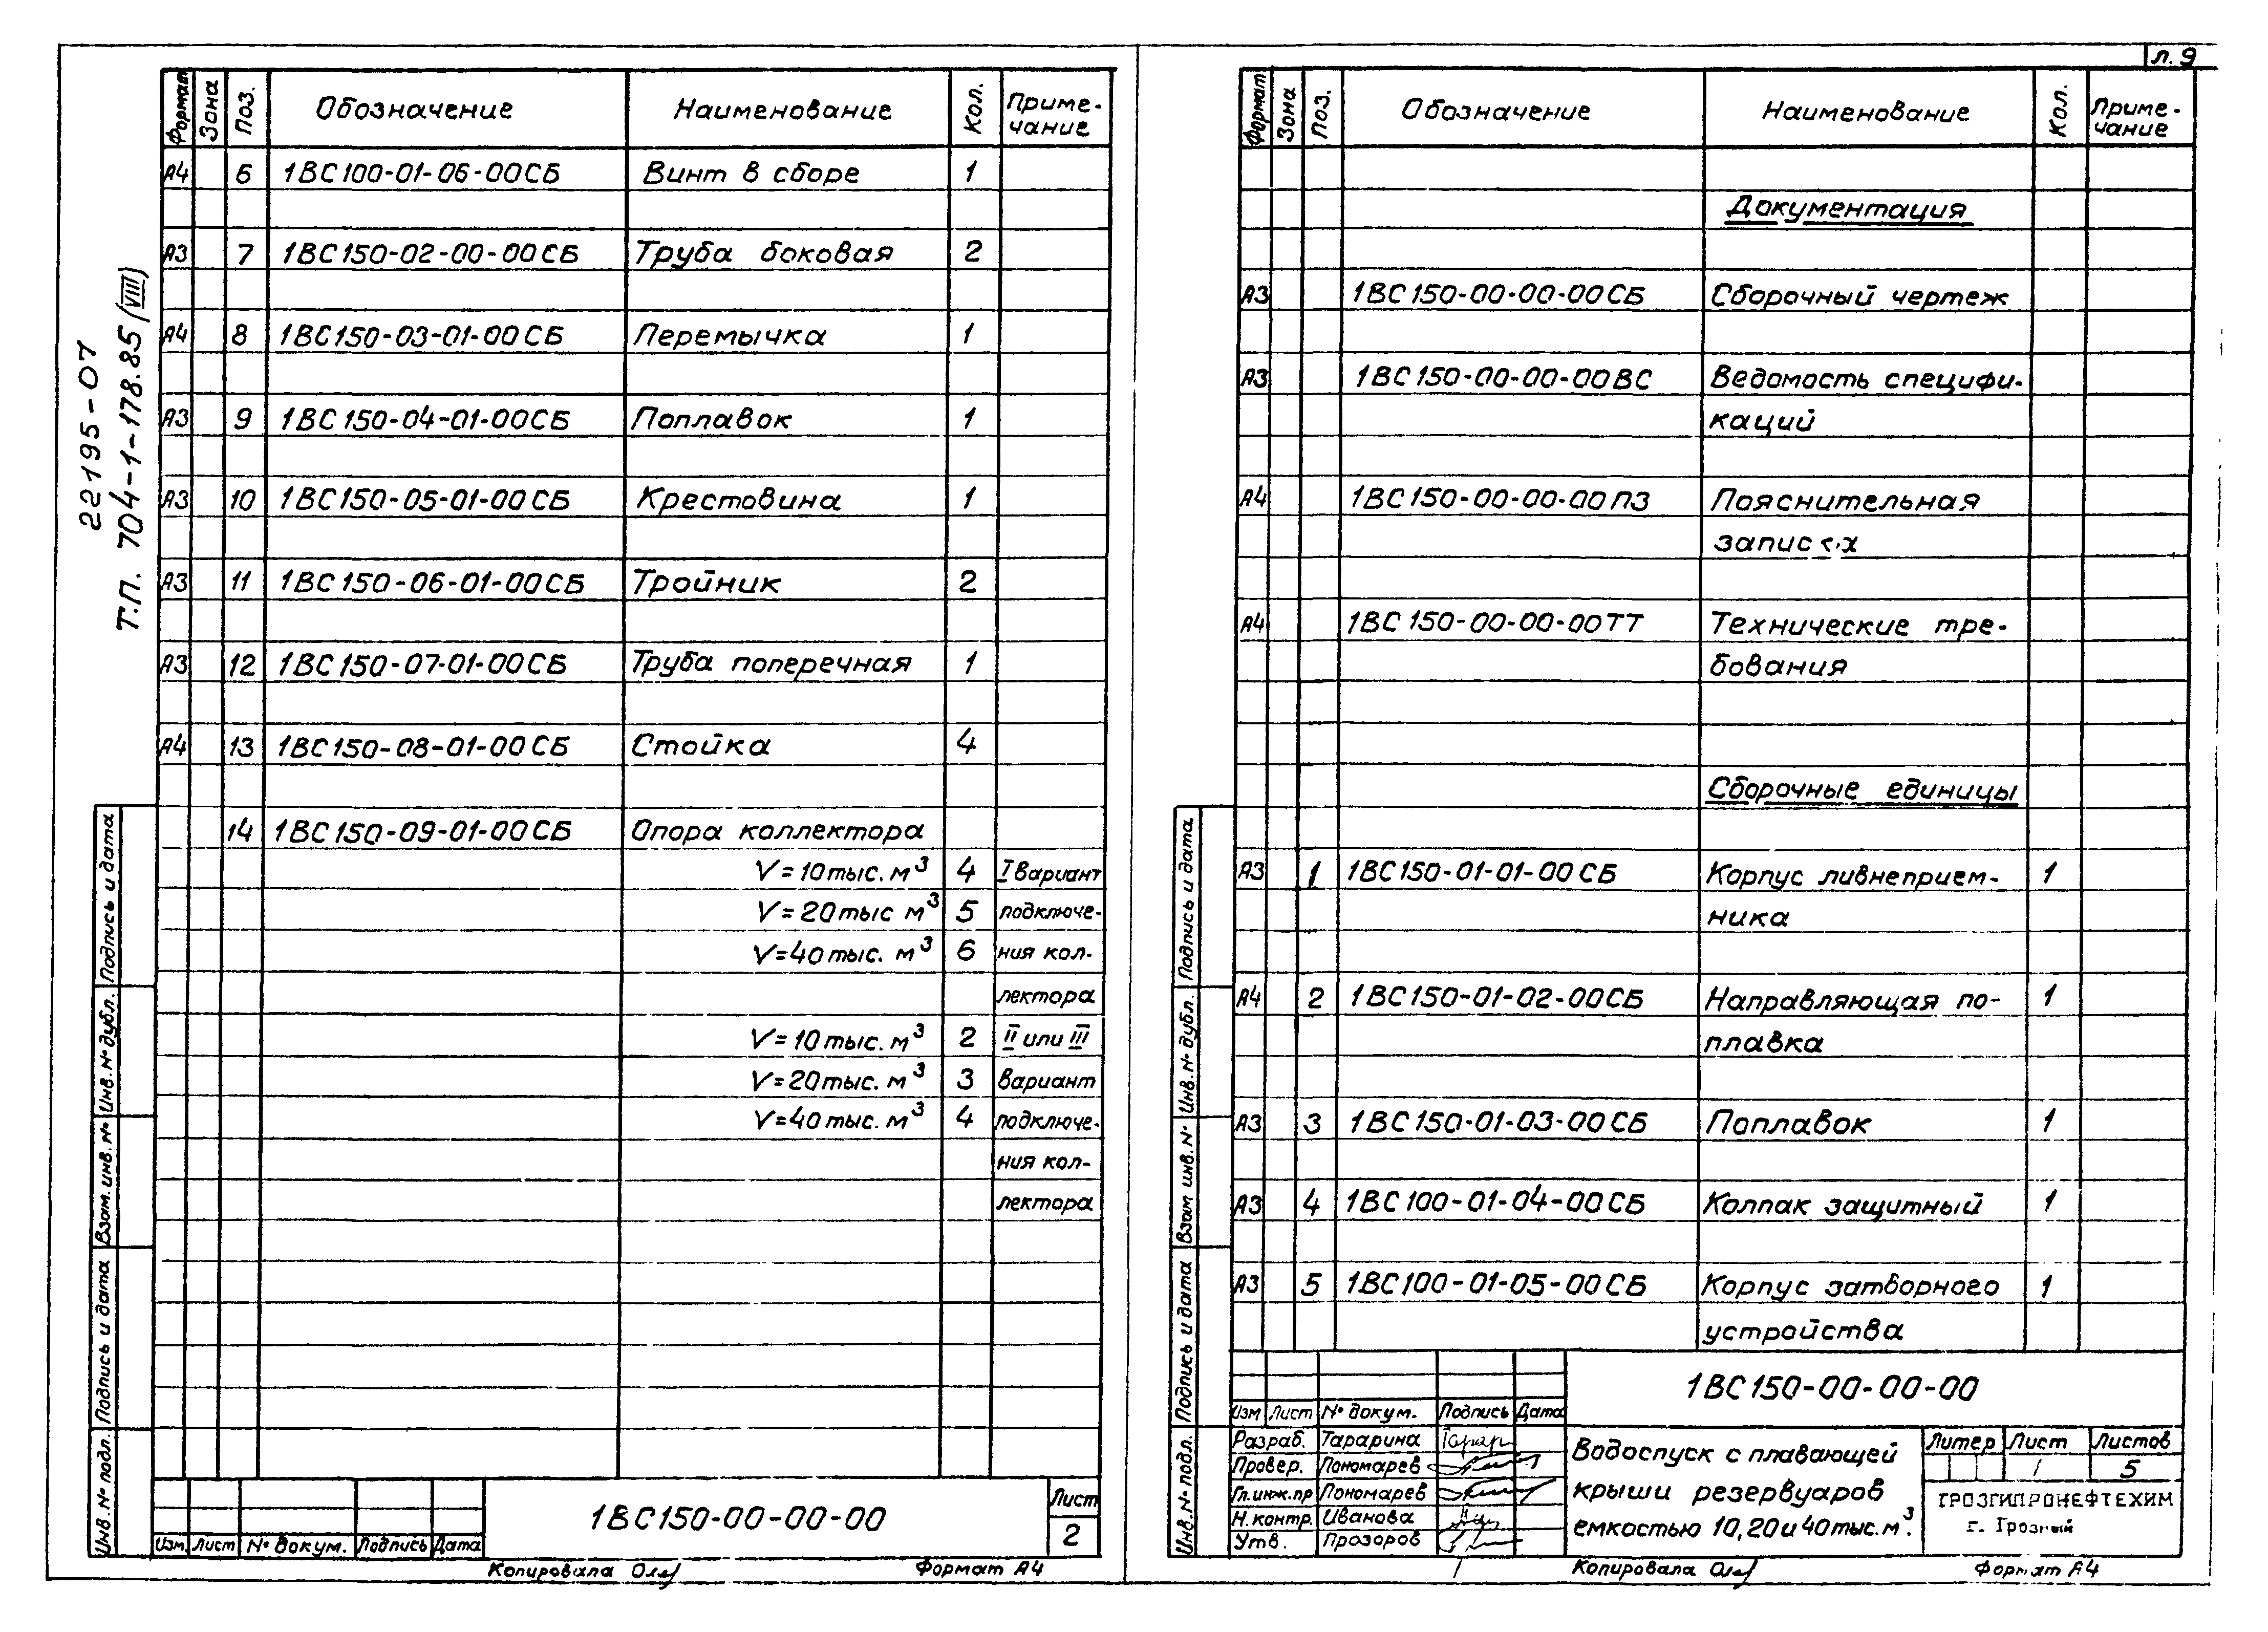 л. 9
22195-07
Т.П. 704-1-178.85 (VIII)
Формат Зона Поз. Обозначение Наименование Кол. Приме-
чание
А4 6 1ВС100-01-06-00СБ Винт в сборе 1
А3 7 1ВС150-02-00-00СБ Труба боковая 2
А4 8 1ВС150-03-01-00СБ Перемычка 1
А3 9 1ВС150-04-01-00СБ Поплавок 1
А3 10 1ВС150-05-01-00СБ Крестовина 1
А3 11 1ВС150-06-01-00СБ Тройник 2
А3 12 1ВС150-07-01-00СБ Труба поперечная 1
А4 13 1ВС150-08-01-00СБ Стойка 4
14 1ВС150-09-01-00СБ Опора коллектора
V=10тыс. м³ 4 I вариант
V=20тыс м³ 5 подключе-
V=40тыс. м³ 6 ния кол-
лектора
V=10тыс. м³ 2 II или III
V=20тыс. м³ 3 вариант
V=40тыс. м³ 4 подключе-
ния кол-
лектора
Инв.№ подл. Подпись и дата Взам. инв. № Инв. № дубл. Подпись и дата
Изм. Лист № докум. Подпись Дата
1ВС150-00-00-00
Лист
2
Копировала
Формат А4
Формат Зона Поз. Обозначение Наименование Кол. Приме-
чание
Документация
А3 1ВС150-00-00-00СБ Сборочный чертеж
А3 1ВС150-00-00-00ВС Ведомость специфи-
каций
А4 1ВС150-00-00-00ПЗ Пояснительная
А4 1ВС150-00-00-00ТТ Технические тре-
бования
Сборочные единицы
А3 1 1ВС150-01-01-00СБ Корпус ливнеприем- 1
ника
А4 2 1ВС150-01-02-00СБ Направляющая по- 1
плавка
А3 3 1ВС150-01-03-00СБ Поплавок 1
А3 4 1ВС100-01-04-00СБ Колпак защитный 1
А3 5 1ВС100-01-05-00СБ Корпус затворного 1
устройства
Инв.№ подл. Подпись и дата Взам инв. № Инв. № дубл. Подпись и дата
1ВС150-00-00-00
Изм Лист № докум. Подпись Дата
Разраб. Тарарина
Провер. Пономарев
Гл.инж.пр Пономарев
Н.контр. Иванова
Утв. Прозоров
Водоспуск с плавающей
крыши резервуаров
емкостью 10,20 и 40 тыс.м³.
Литер Лист Листов
1 5
ГРОЗГИПРОНЕФТЕХИМ
г. Грозный
Копировала
Формат А4